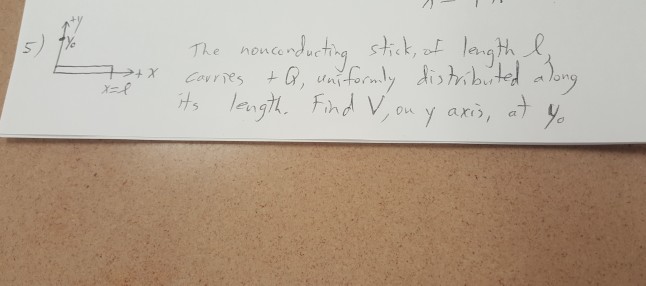 5) +y
y₀
+x
x=l
The nonconducting stick, of length l,
carries +Q, uniformly distributed along
its length. Find V, on y axis, at y₀